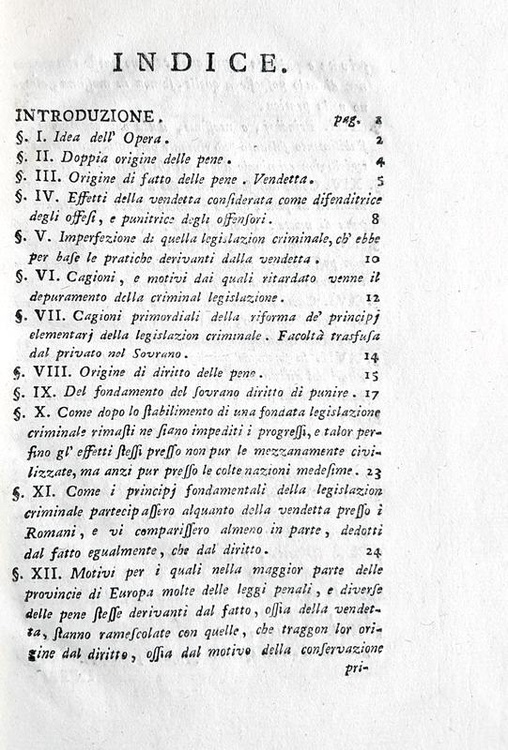 INDICE.
INTRODUZIONE. pag. 1
§. I. Idea dell' Opera. 2
§. II. Doppia origine delle pene. 4
§. III. Origine di fatto delle pene. Vendetta. 5
§. IV. Effetti della vendetta conſiderata come difenditrice
degli offeſi, e punitrice degli offenſori. 8
§. V. Imperfezione di quella legislazion criminale, ch' ebbe
per baſe le pratiche derivanti dalla vendetta. 10
§. VI. Cagioni, e motivi dai quali ritardato venne il
depuramento della criminal legislazione. 12
§. VII. Cagioni primordiali della riforma de' principj
elementarj della legislazion criminale. Facoltà trasfuſa
dal privato nel Sovrano. 14
§. VIII. Origine di diritto delle pene. 15
§. IX. Del fondamento del ſovrano diritto di punire. 17
§. X. Come dopo lo ſtabilimento di una fondata legislazione
criminale rimaſti ne ſiano impediti i progreſſi, e talor per-
fino gl' effetti ſteſſi preſſo non pur le mezzanamente civi-
lizzate, ma anzi pur preſſo le colte nazioni medeſime. 23
§. XI. Come i principj fondamentali della legislazion
criminale partecipaſſero alquanto della vendetta preſſo i
Romani, e vi compariſſero almeno in parte, dedotti
dal fatto egualmente, che dal diritto. 24
§. XII. Motivi per i quali nella maggior parte delle
provincie di Europa molte delle leggi penali, e diverſe
delle pene ſteſſe derivanti dal fatto, oſſia della vendet-
ta, ſtanno rameſcolate con quelle, che traggon lor ori-
gine dal diritto, oſſia dal motivo della conſervazione
pri-